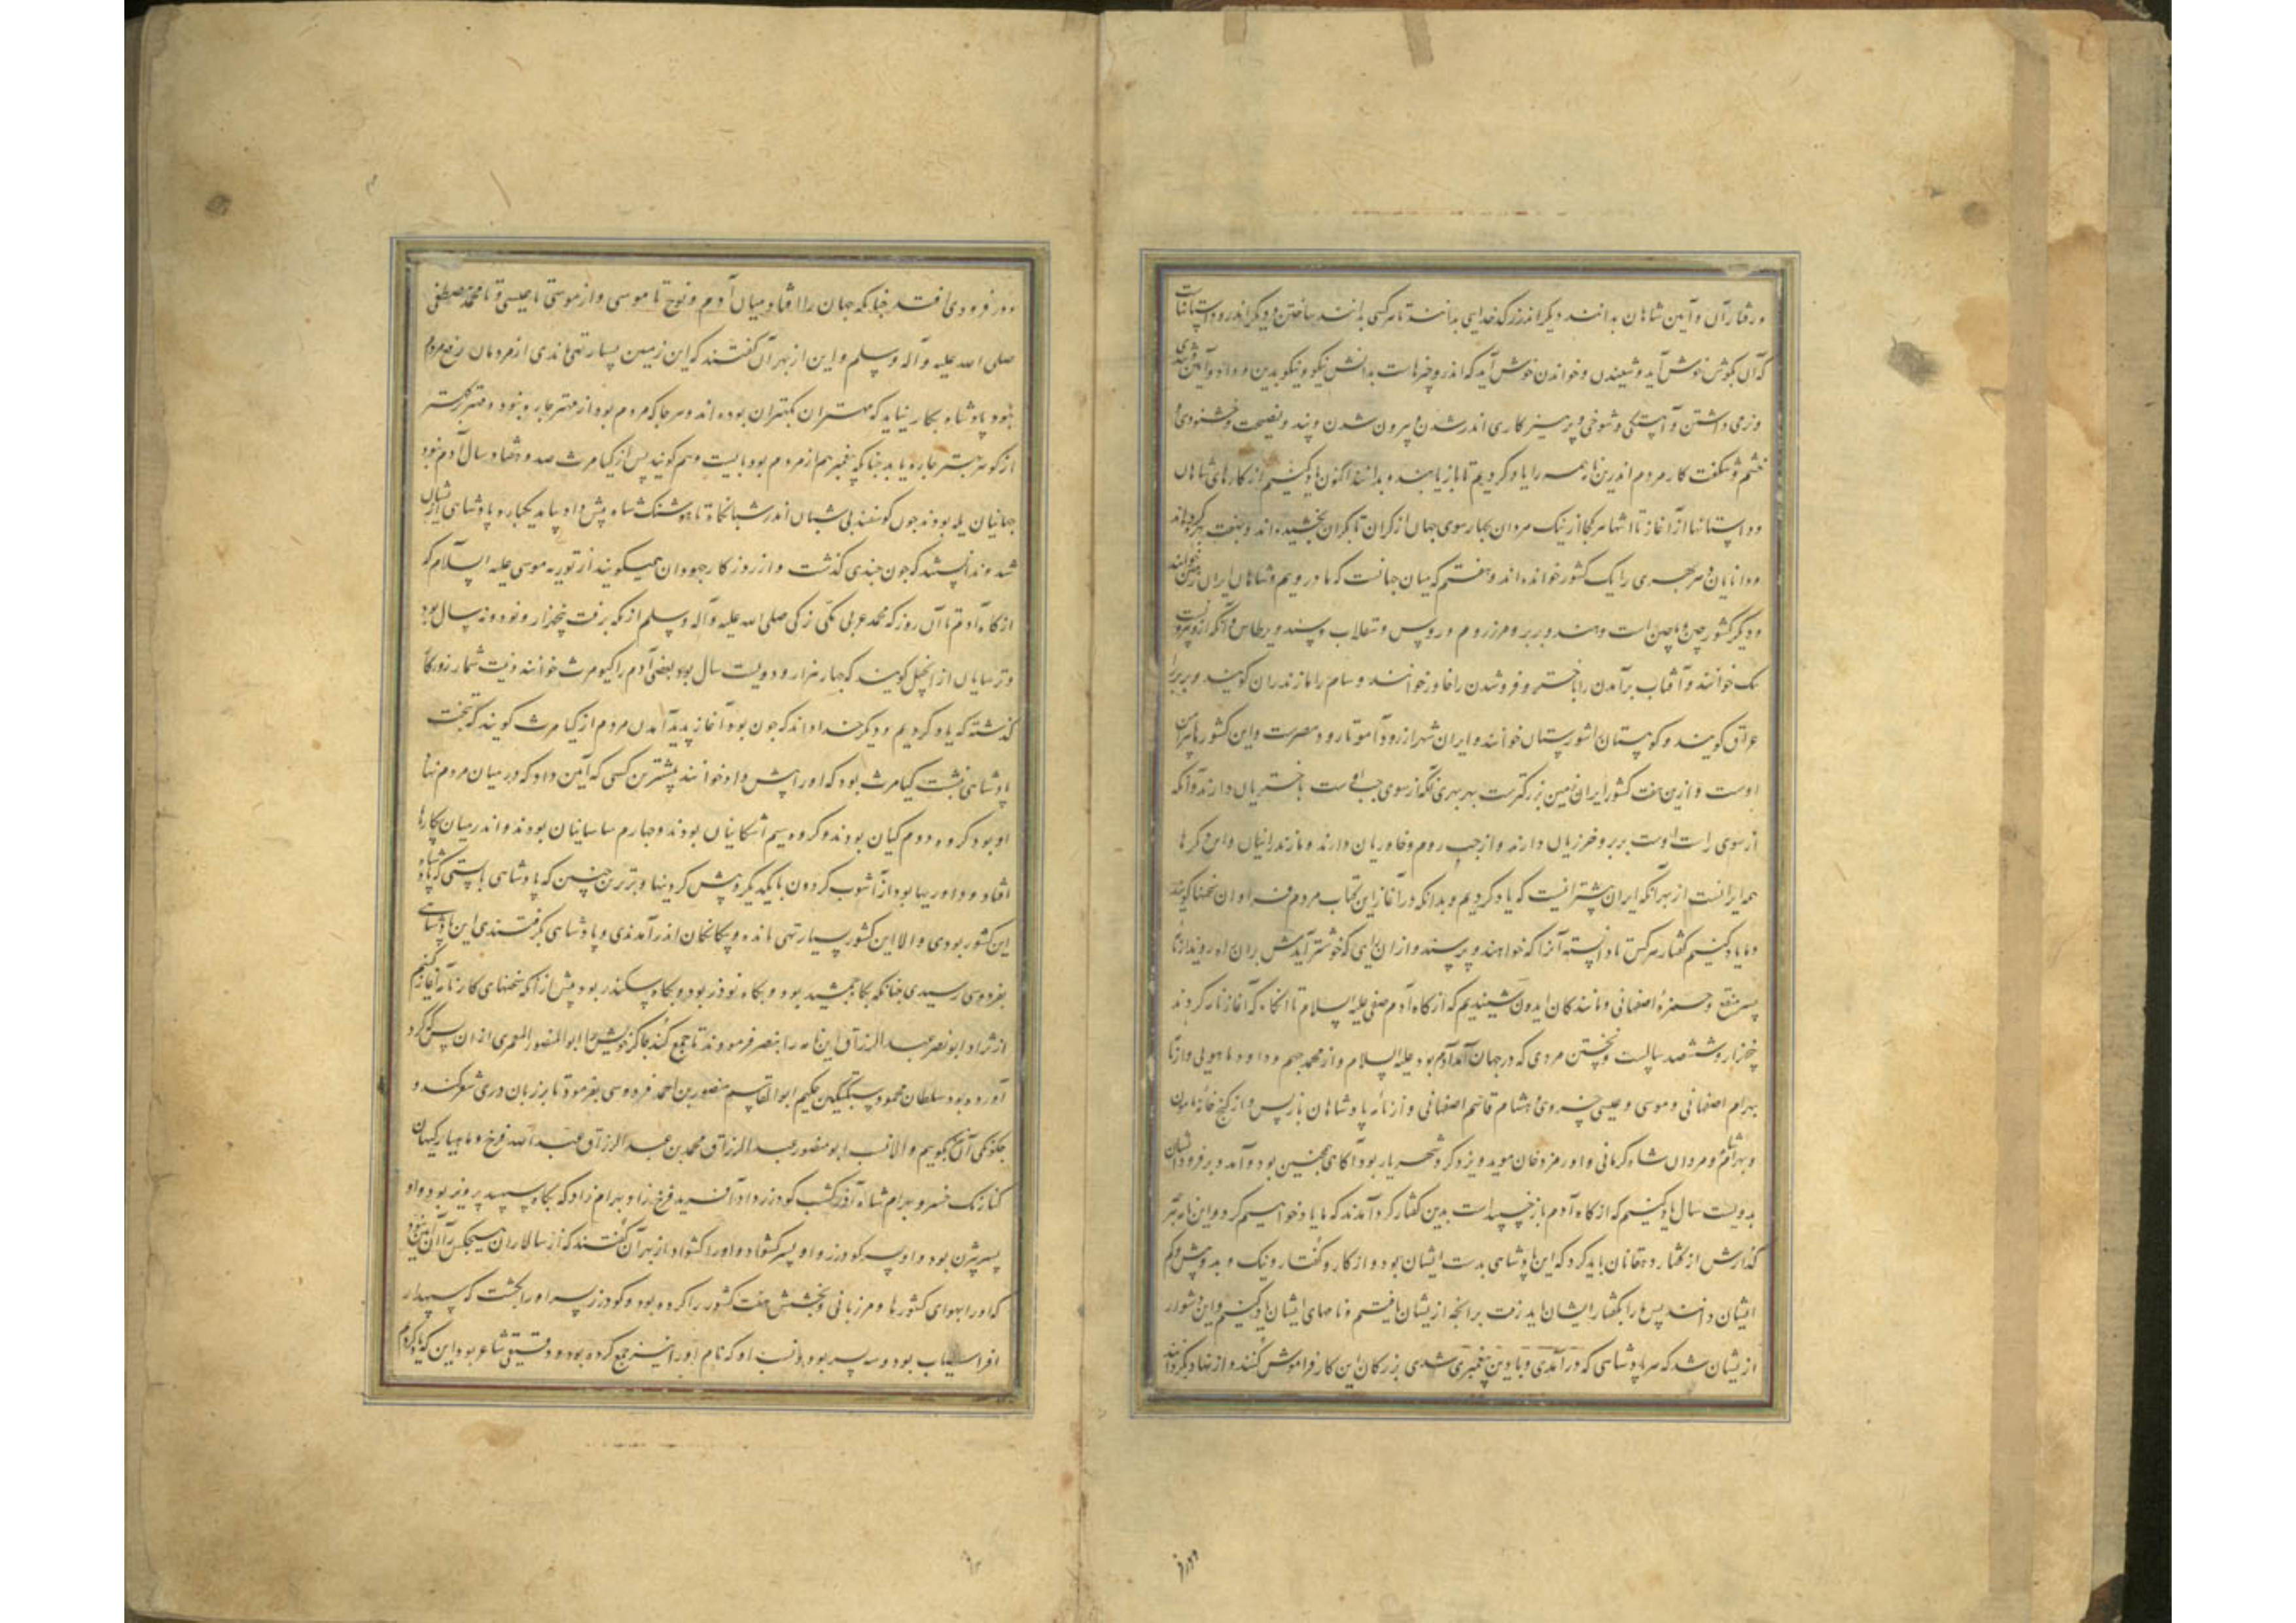 و رفتار آن و آیین شاهان بدانند دیگر اندرز که خدایی بدانند تا هر کسی بدانند ساختن و دیگر اندرو داستانهاست
که آن بگوش خوش آید و شنیدن و خواندن خوش آید که اندرو چیزهاست بدانش نیکو و نیکو بدین و
و نرمی داشتن و آهستگی و شوخی و پرهیزکاری اندر شدن و بیرون شدن و پند و نصیحت و خشنودی و
خشم و شگفت کار مردم اندرین نامه همه را یاد کردیم تا باز یابند و بدانند اکنون یاد کنیم از کارهای شاهان
و داستانها از آغاز تا انتها هر کجا از نیک مردان بچار سوی جهان از کران تا کران بخشیده‌اند و بهفت بهر کرده‌اند
و دانایان هر بهری را یک کشور خوانده‌اند و هفتم که میان جهانست که ما درویم و شاهان ایران زمین خوانند
و دیگر کشور چین و ماچین است و هند و بربر و مرز روم و روس و سقلاب و سند و برطاس و آنکه ازو بیرونست
سک خوانند و آفتاب برآمدن را باختر و فروشدن را خاور خوانند و شام را مازندران گویند و بربر را
عراق گویند و کوهستان شورستان خوانند و ایران شهر از رود آمو تا رود مصرست و این کشورها پیرامن
اوست و ازین هفت کشور ایران زمین بزرگترست بهر بهری آنکه از سوی چپ اوست باختریان دارند و آنکه
از سوی راست اوست بربر و خزریان دارند و از چپ روم و خاوریان دارند و مازندرانیان و این دگرها
همه ایرانست از بهر آنکه ایران بیشتر اینست که یاد کردیم و بدانکه در آغاز این کتاب مردم فراوان سخنها گویند
و ما یاد کنیم گفتار هر کس تا دانسته آنرا که خواهند و پرسند و از آن رای که خوشتر آیدش بران
پسر مقفع و حمزهٔ اصفهانی و مانندگان ایدون شنیدیم که از گاه آدم صفی علیه السلام تا آنگاه که آغاز نامه کردند
پنجهزار و ششصد سالست و نخستین مردی که در جهان آمد آدم بود علیه السلام و از محمد جهم و داود ماهویی و از نامهٔ
بهرام اصفهانی و موسی و عیسی خسروی و هشام قاسم اصفهانی و از نامهٔ پادشاهان پارس و از گنج خانهٔ مامون
و بهرامشاه مردان شاه کرمانی و اورمزدخان موبد و یزدگرد شهریار بود آگاهی همچنین بود و آمد و بر فرود ایشان
بدویست سال یاد کنیم که از گاه آدم باز چیست بدین گفتار گرد آمدند که ما یاد خواهیم کرد و این نامه هر
گذارش از گفتار دهقانان باید کرد که این پادشاهی بدست ایشان بود و از کار و گفتار و نیک و بد و بیش و کم
ایشان دانند پس ما را بگفتار ایشان باید رفت بر آنچه از ایشان یافتیم و نامهای ایشان یاد کنیم و این دشوار
ازیشان شد که هر پادشاهی که در آمدی و یا دین پیغمبری شدی بزرگان این کار فراموش کنند و از نهاد بگردانند
و بر فرودی افتد چنانکه جهان را افتاد میان آدم و نوح تا موسی و از موسی تا عیسی و تا محمد مصطفی
صلی الله علیه و آله و سلم و این از بهر آن گفتند که این زمین بسیار تهی ماندی از مردمان و مردم
نبود پادشاه بکار نیاید که مهتران بکهتران بوده‌اند و هر جا که مردم بود از مهتر چاره نبود و مهتر بر کهتر
از گوهر مهتر چاره باید چنانکه پیغمبر هم از مردم بود بایست و هم گویند پس از کیامرث صد و هفتاد سال آدم نبود
جهانیان یله بودند چون گوسفند بی شبان اندر شبانگاه تا هوشنگ شاه پیش داد بیامد یکباره پادشاهی ازیشان
شد و ندانستند که چون چندی گذشت و از روزگار جهودان همیگویند از توریة موسی علیه السلام که
از گاه آدم تا آن روز که محمد عربی مکی زکی صلی الله علیه و آله و سلم از مکه برفت پنجهزار و نود و نه سال بود
و ترسایان از انجیل گویند که چهار هزار و دویست سال بود و بعضی آدم را کیومرث خوانند و نیست شمار روزگار
گذشته که یاد کردیم و دیگر خدا داند که چون بود آغاز پدید آمدن مردم از کیامرث گویند که بتخت
پادشاهی نشست کیامرث بود که او را پیش داد خوانند پیشترین کسی که آیین داد که در میان مردم نهاد
او بود گروه دوم کیان بودند و گروه سیم اشکانیان بودند و چهارم ساسانیان بودند و اندر میان پیکارها
افتاد و داوریها بود از آشوب گردون با یکدیگر و پیش کردنها و برترین چنین که پادشاهی بایستی که پادشاه
این کشور بودی و الا این کشور بسیار تهی مانده و بیگانگان اندر آمدندی و پادشاهی بگرفتندی این پادشاهی
بفردوسی رسیدی چنانکه بگاه جمشید بود و بگاه نوذر بود و بگاه سکندر بود پیش از آنکه سخنهای کارنامه آغاز کنیم
از نژاد ابونصر عبد الرزاق این نامه را بنصر فرمودند تا جمع کند چاکر خویش را ابوالمنصور المعمری از آن پس که گرد
آورده بود سلطان محمود سبکتگین حکیم ابوالقاسم منصور بن احمد فردوسی بفرمود تا بر زبان دری شعر کند و
چگونگی آن بگوییم و الا نسب ابو منصور عبد الرزاق محمد بن عبد الرزاق عبد الله فرخ و ماهیار کیهان
کنارنک خسرو بهرام شاه آذر گشسب گودرز داد آفرید فرخ زاد بهرام زاد که بگاه سپهبد پرویز بود و او
پسر بیژن بود و او پسر گودرز و او پسر گشواد و او را گشواد از بهر آن گفتند که از سالاران هیچکس را آن آیین نبود
که او را بهوای کشورها و مرزبانی و بخشش هفت کشور را کرده بود و گودرز پسر او را بکشت که سپهدار
افراسیاب بود و سه پسر بود و نسب او که نام او را نیز جمع کرده بود و دقیقی شاعر بود این که یاد کردم